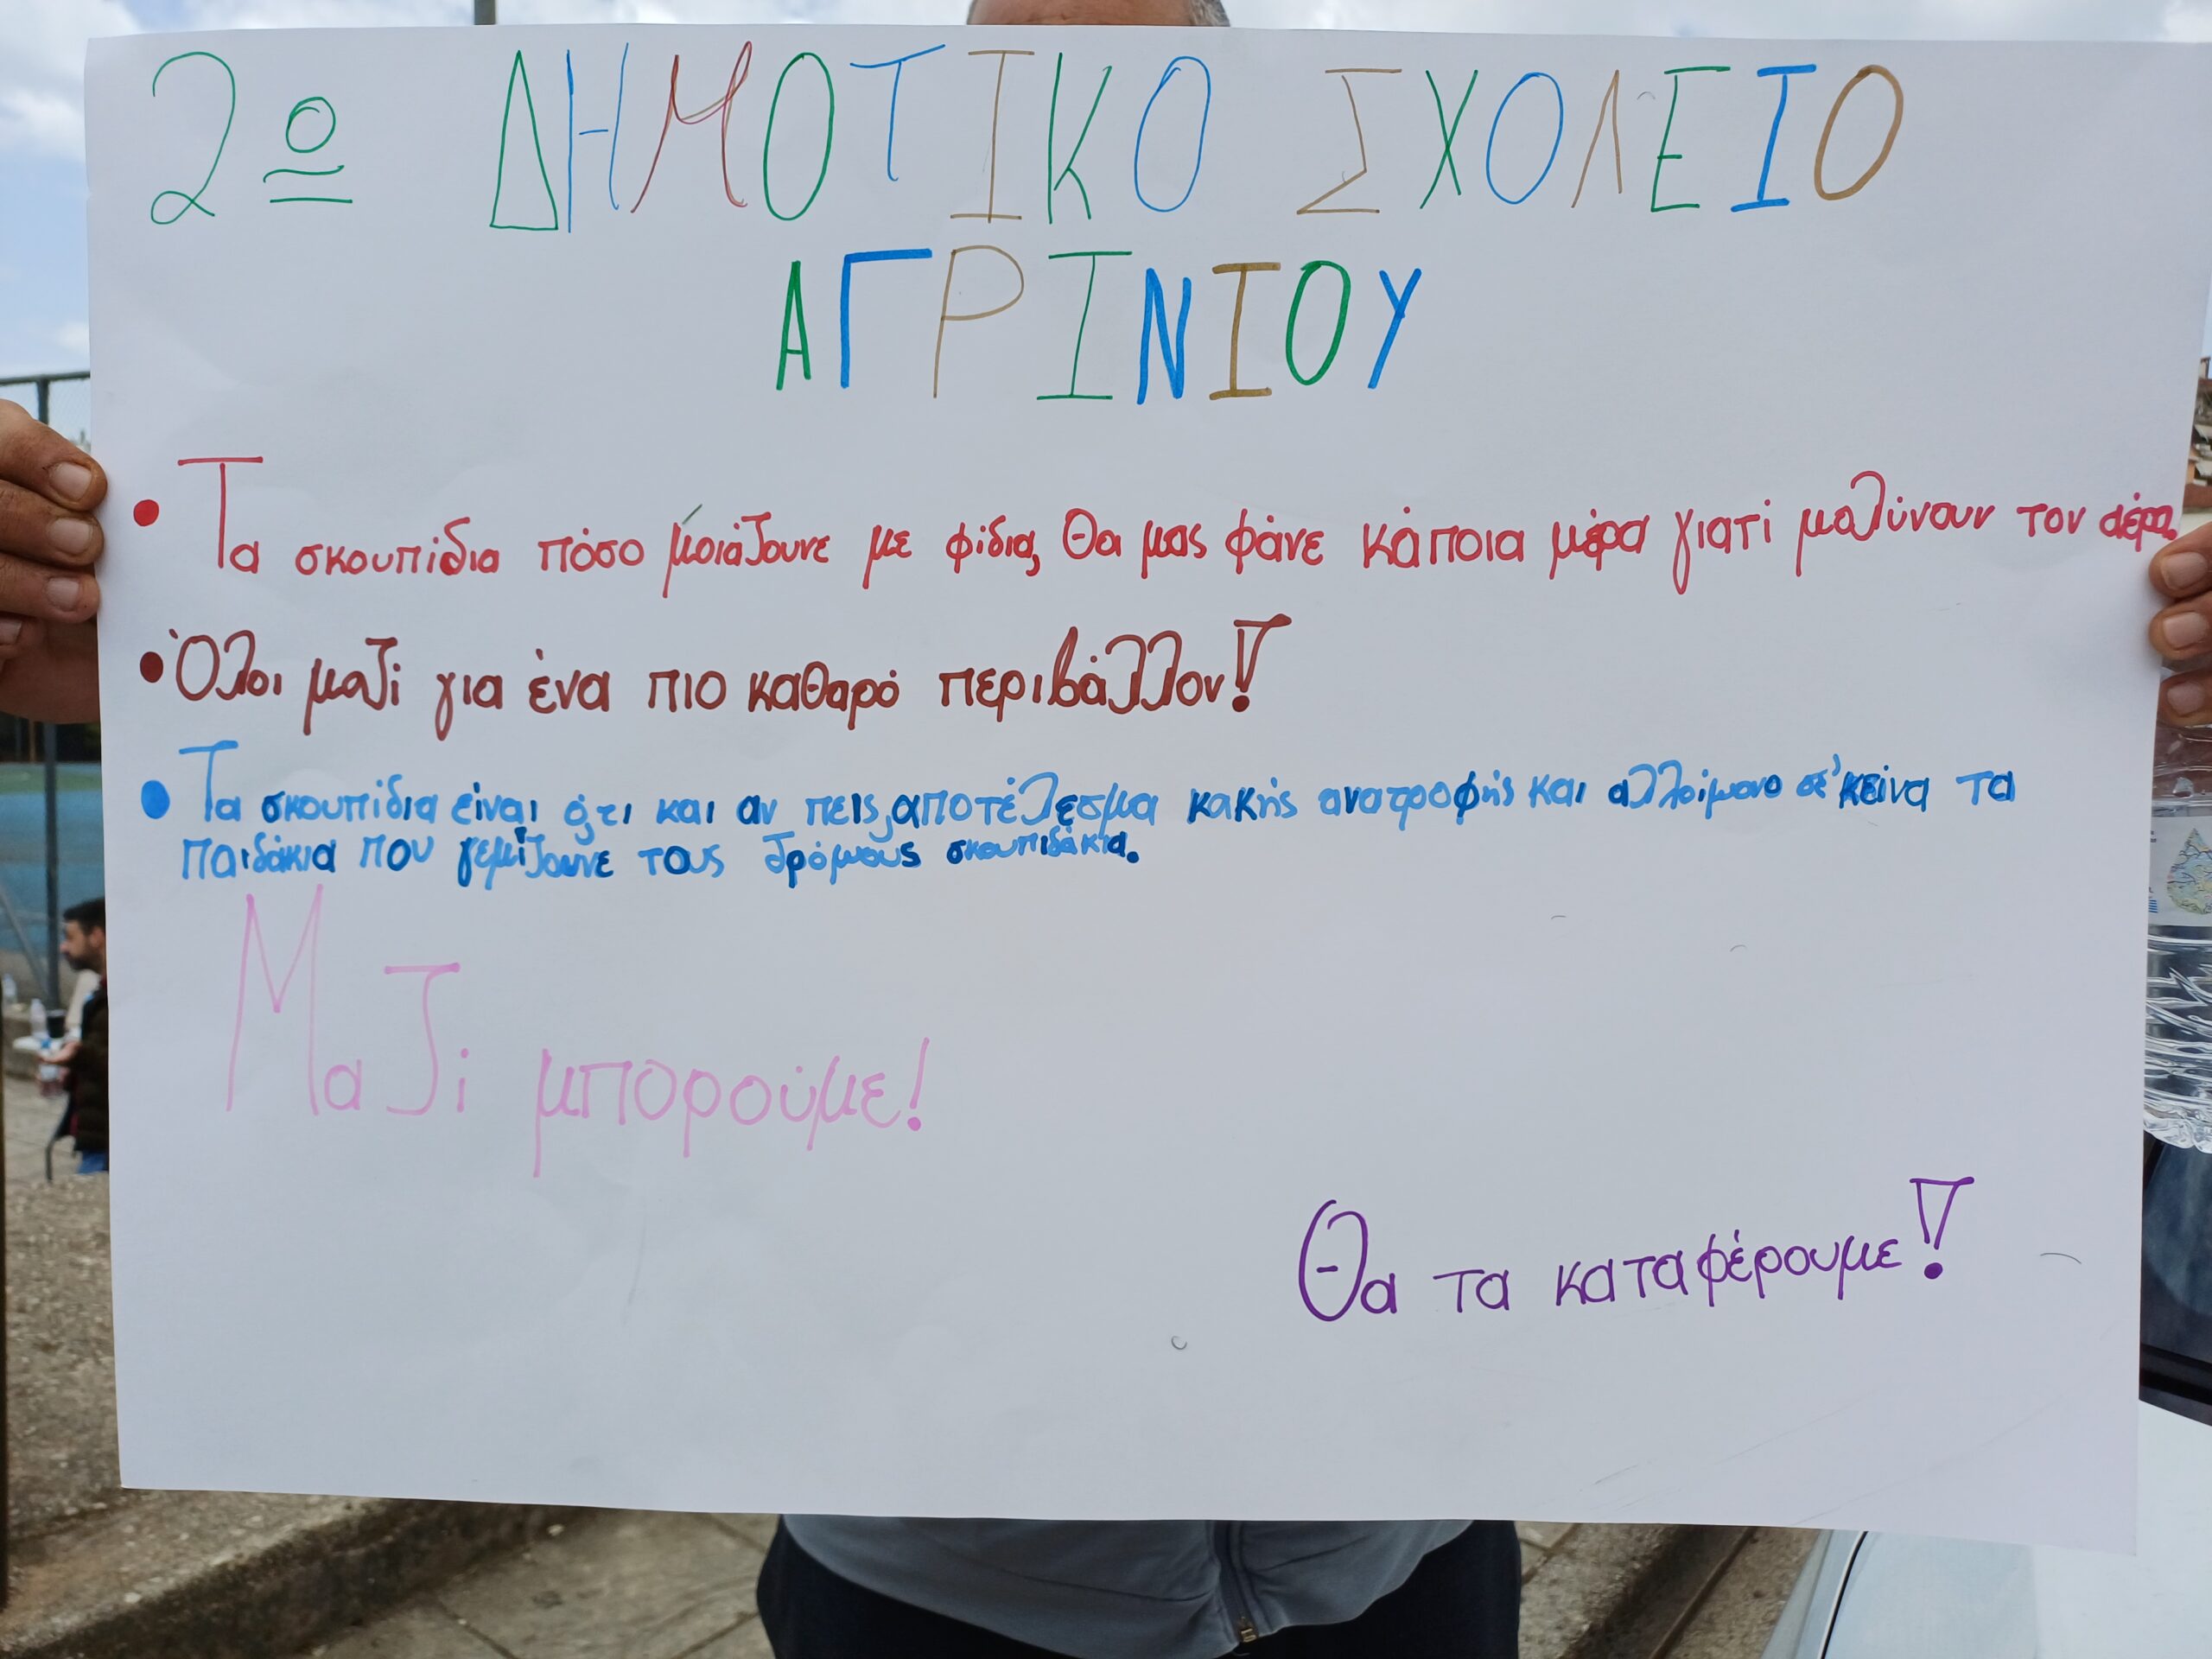 2ο ΔΗΜΟΤΙΚΟ ΣΧΟΛΕΙΟ
ΑΓΡΙΝΙΟΥ
• Τα σκουπίδια πόσο μοιάζουνε με φίδια, Θα μας φάνε κάποια μέρα γιατί μολύνουν τον αέρα.
• Όλοι μαζί για ένα πιο καθαρό περιβάλλον!
• Τα σκουπίδια είναι ότι και αν πεις, αποτέλεσμα κακής ανατροφής και αλλοίμονο σ' κείνα τα
παιδάκια που γεμίζουνε τους δρόμους σκουπιδάκια.
Μαζί μπορούμε!
Θα τα καταφέρουμε!